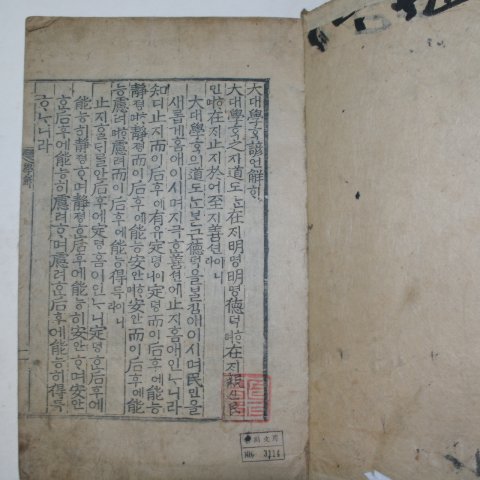 大대學ᄒᆞᆨ諺언解ᄒᆡ
大대學ᄒᆞᆨ之지道도ᄂᆞᆫ在ᄌᆡ明명明명德덕ᄒᆞ며在ᄌᆡ親신民
민ᄒᆞ며在ᄌᆡ止지於어至지善션이니라
大대學ᄒᆞᆨ의道도ᄂᆞᆫᄇᆞᆯ근德덕을ᄇᆞᆯ킴애이시며民민을
새롭게홈애이시며지극ᄒᆞᆫ善션에止지홈애인ᄂᆞ니라
知디止지而이后후에有유定뎡이니定뎡而이后후에能능
靜졍ᄒᆞ며靜졍而이后후에能능安안ᄒᆞ며安안而이后후에能
능慮려ᄒᆞ며慮려而이后후에能능得득이니라
止지ᄒᆞᆯᄃᆡᄅᆞᆯ안后후에定뎡홈이인ᄂᆞ니定뎡ᄒᆞᆫ后후에
能능히靜졍ᄒᆞ며靜졍ᄒᆞᆫ后후에能능히安안ᄒᆞ며安안
ᄒᆞᆫ后후에能능히慮려ᄒᆞ며慮려ᄒᆞᆫ后후에能능히得득
ᄒᆞᄂᆞ니라
一
No. 3114